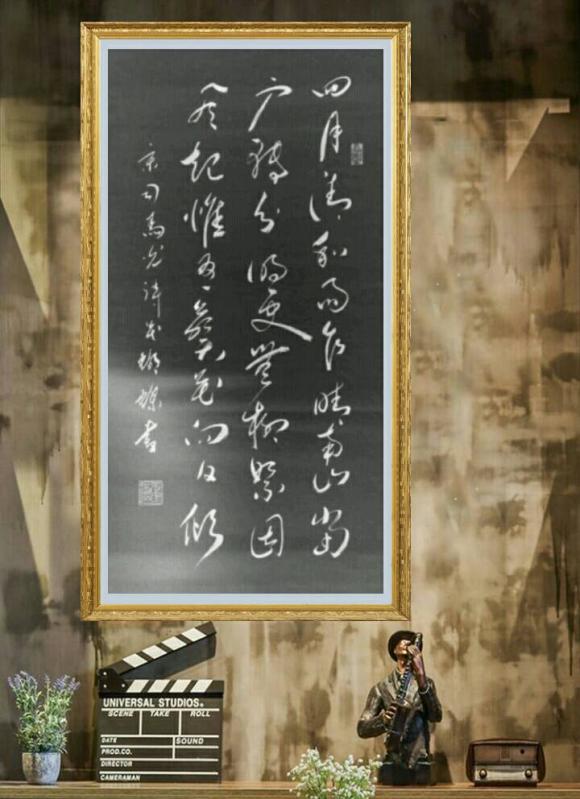 四月清和雨乍晴南山當
户轉分明更無柳絮因
風起惟有葵花向日傾
宋司馬光詩 書
UNIVERSAL STUDIOS
SCENE TAKE ROLL
DATE SOUND
PROD.CO.
DIRECTOR
CAMERAMAN